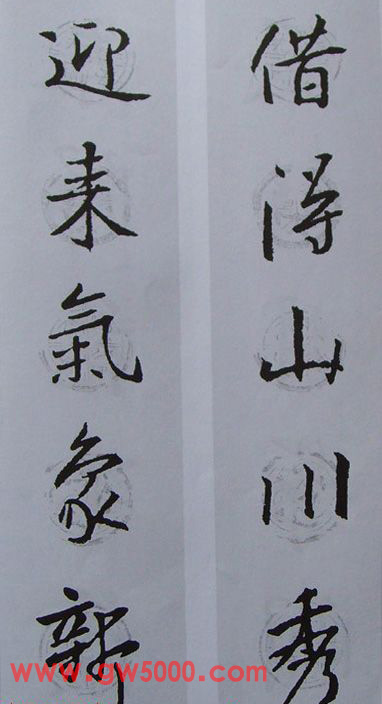 借得山川秀
迎来氣象新
www.gw5000.com